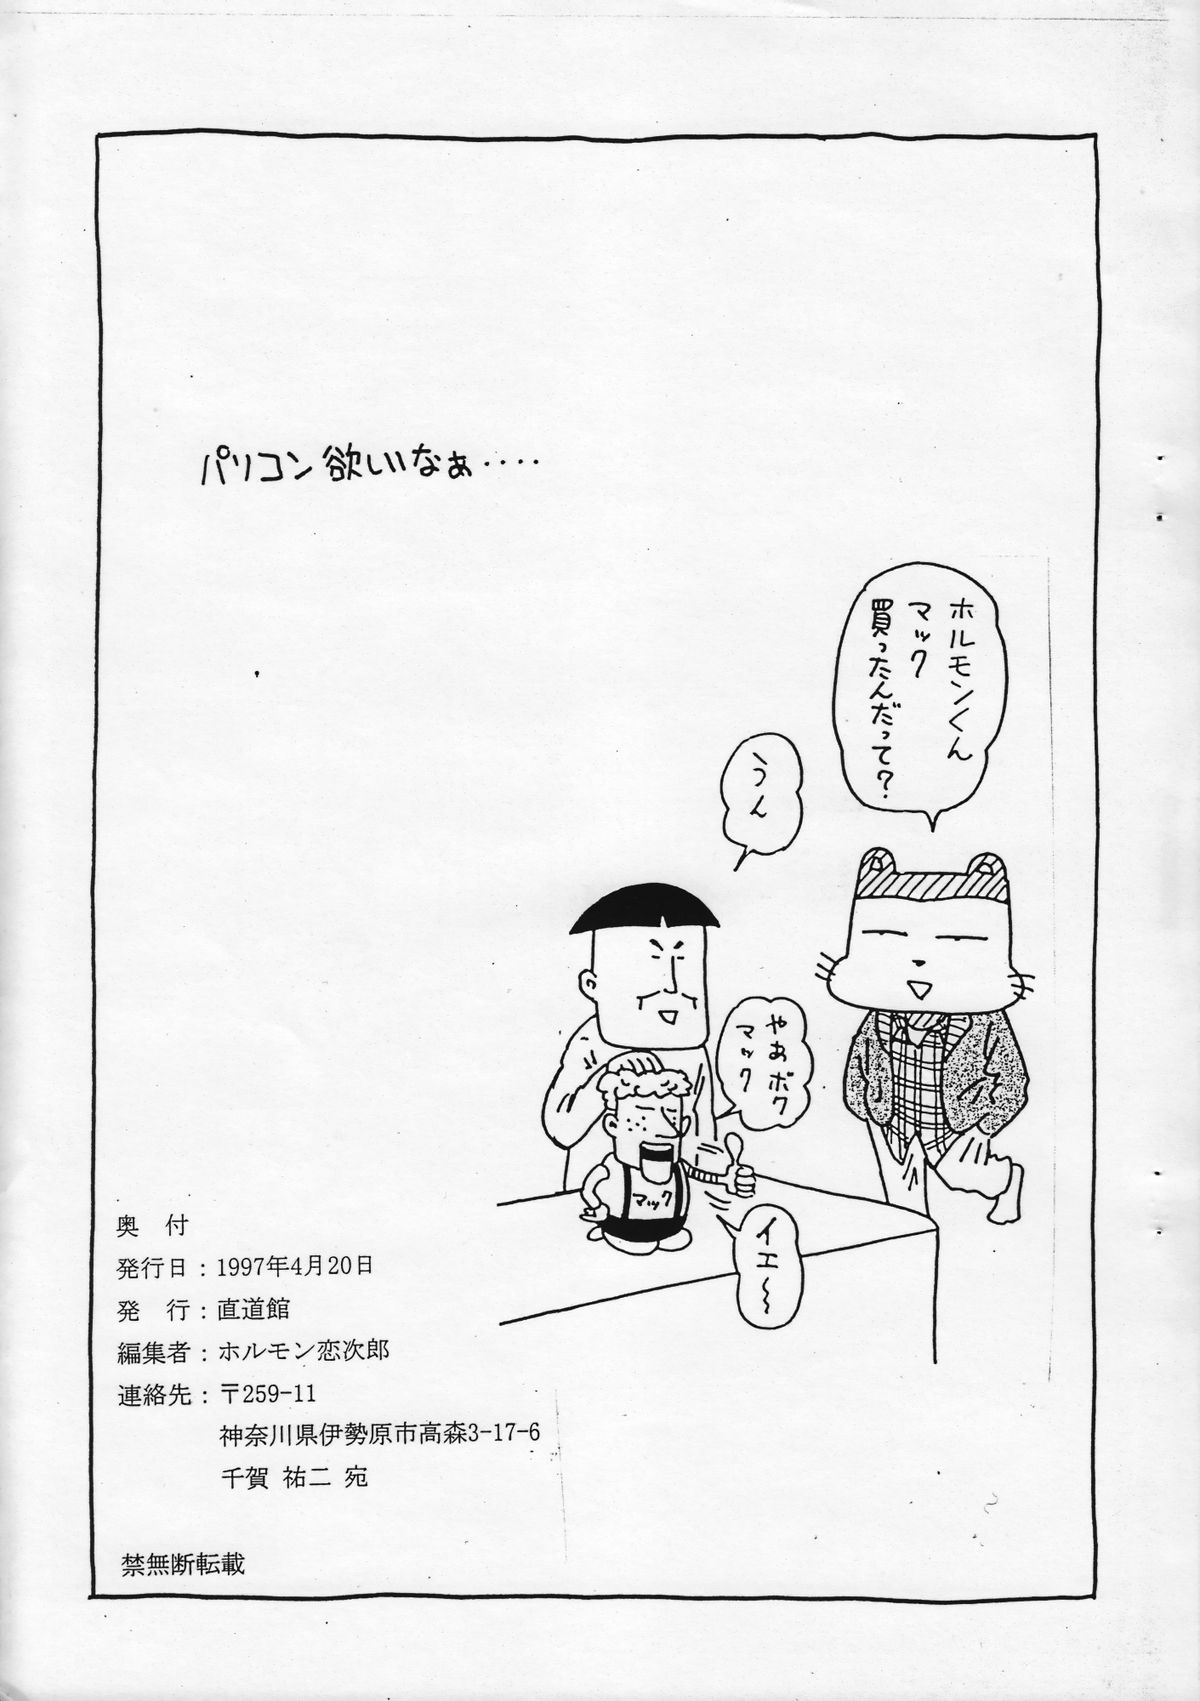 パソコン欲しいなぁ‥‥
ホルモンくん
マック
買ったんだって?
うん
やあボク
マック
マック
イエ～
奥　付
発行日：1997年4月20日
発　行：直道館
編集者：ホルモン恋次郎
連絡先：〒259-11
神奈川県伊勢原市高森3-17-6
千賀 祐二 宛
禁無断転載